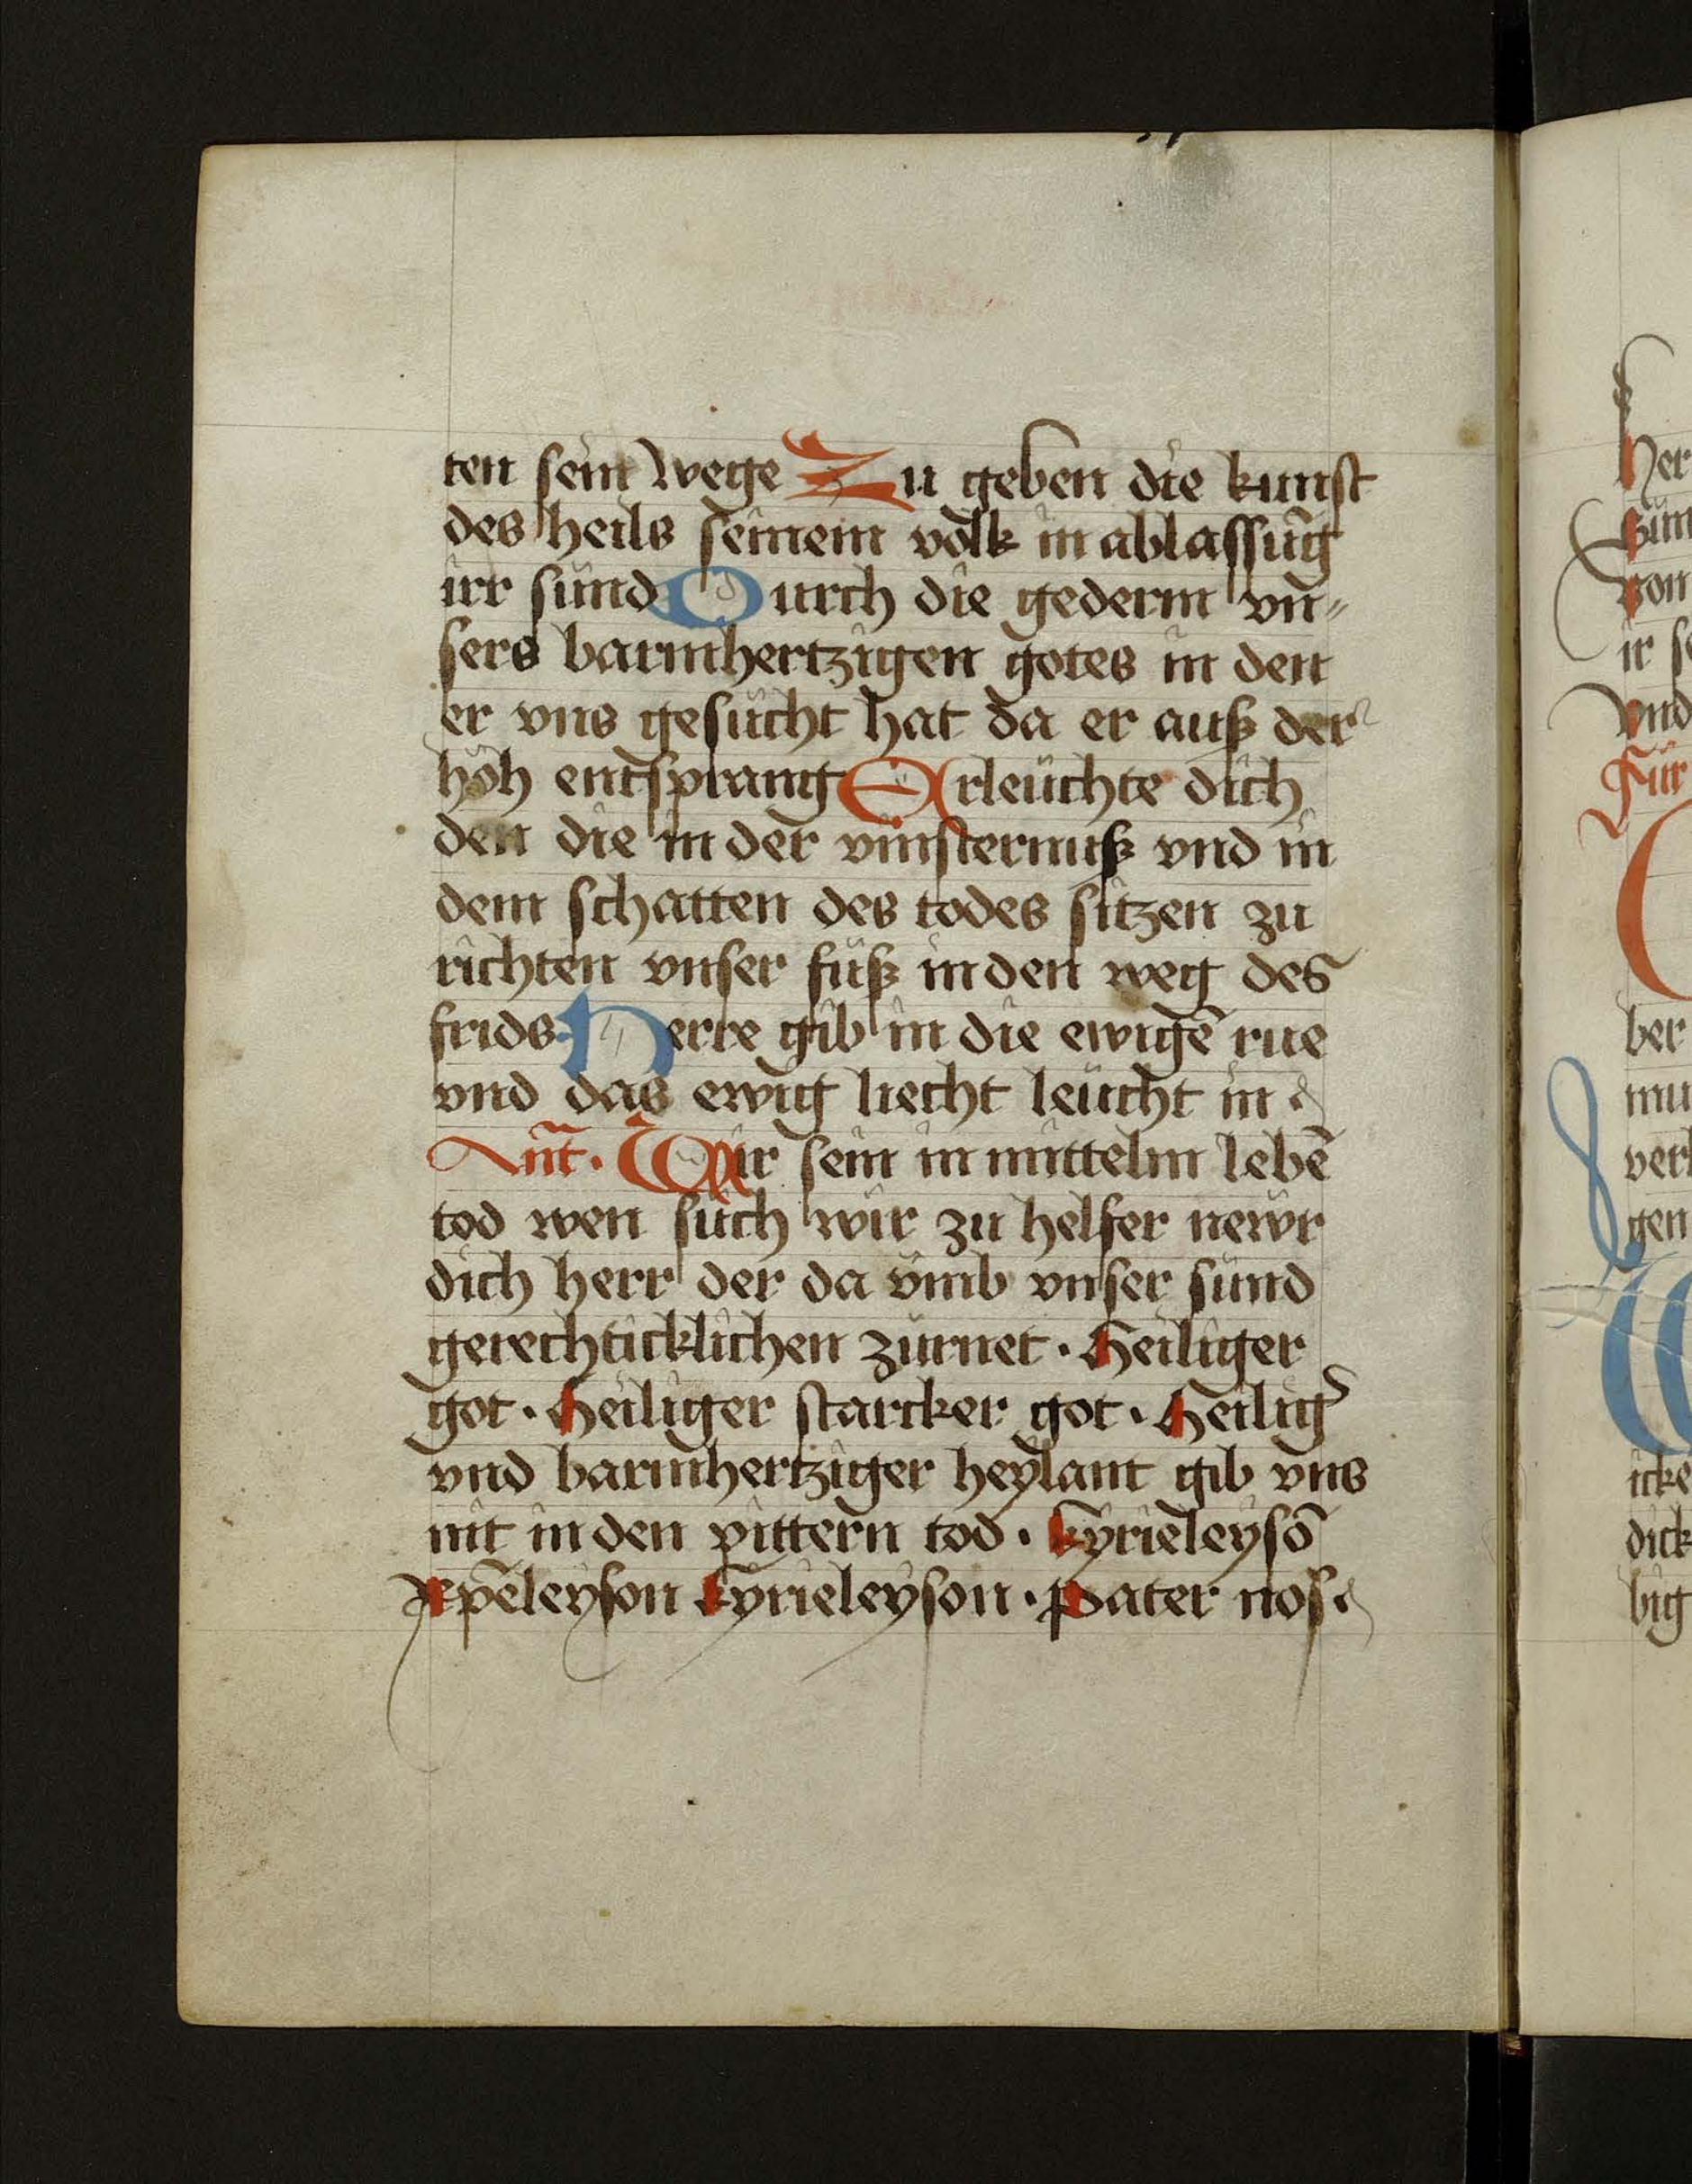 ten sein wege Zu geben die kunst
des heils seinem volk in ablassūg
irr sünd Durch die gederm vn⸗
sers barmhertzigen gotes in den
er vns gesucht hat da er auß der
höh entsprang Erleüchte dich
den die in der vinsternuß vnd in
dem schatten des todes sitzen zu
richten vnser füß in den weg des
frids Herre gib in die ewigē rue
vnd das ewig liecht leücht in
Ant̄. Wir sein in mittelm lebē
tod wen such wir zu helfer newr
dich herr der da vmb vnser sünd
gerechticklichen zürnet · Heiliger
got · Heiliger starcker got · Heilig̾
vnd barmhertziger heylant gib vns
nit in den pittern tod · kyrieleysō
xp̄eleyson kyrieleyson · Pater nos
her
von
ir
vnd
Für
ber
gen
icke
dick
big